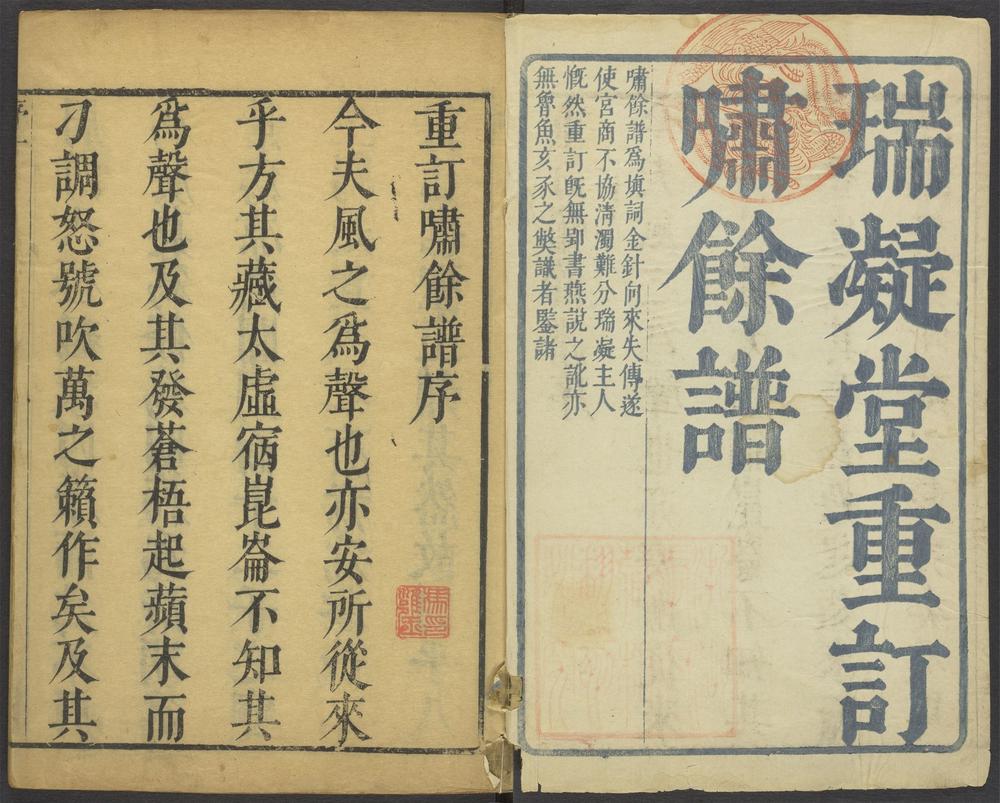 瑞凝堂重訂
嘯餘譜
嘯餘譜爲塡詞金針向來失傳遂
使宮商不協清濁難分瑞凝主人
慨然重訂旣無郢書燕說之訛亦
無魯魚亥豕之獘識者鑒諸
重訂嘯餘譜序
今夫風之爲聲也亦安所從來
乎方其藏太虛宿崑崙不知其
爲聲也及其發蒼梧起蘋末而
刁調怒號吹萬之籟作矣及其